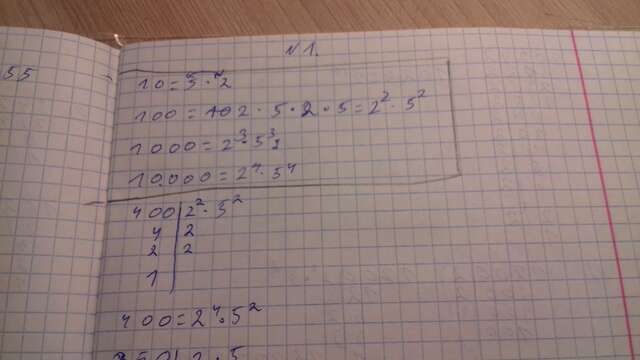 55
N1.
10=5·2
100=10 2·5·2·5=2²·5²
1000=2³·5³
10.000=2⁴·5⁴
400|2²·5²
4|2
2|2
1|
400=2⁴·5²